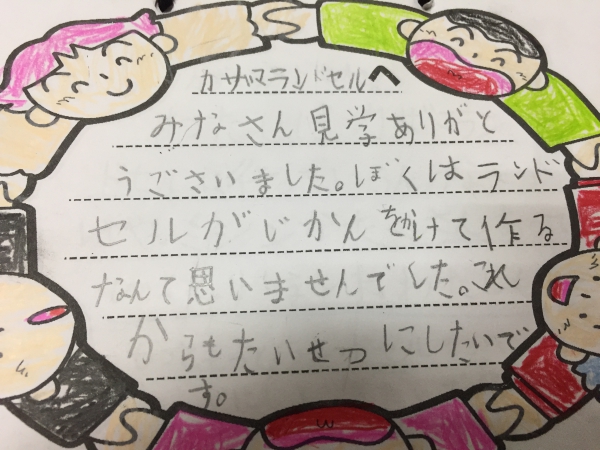 カザマランドセルへ
みなさん見学ありがと
うございました。ぼくはランド
セルがじかんをかけて作る
なんて思いませんでした。これ
からもたいせつにしたいで
す。